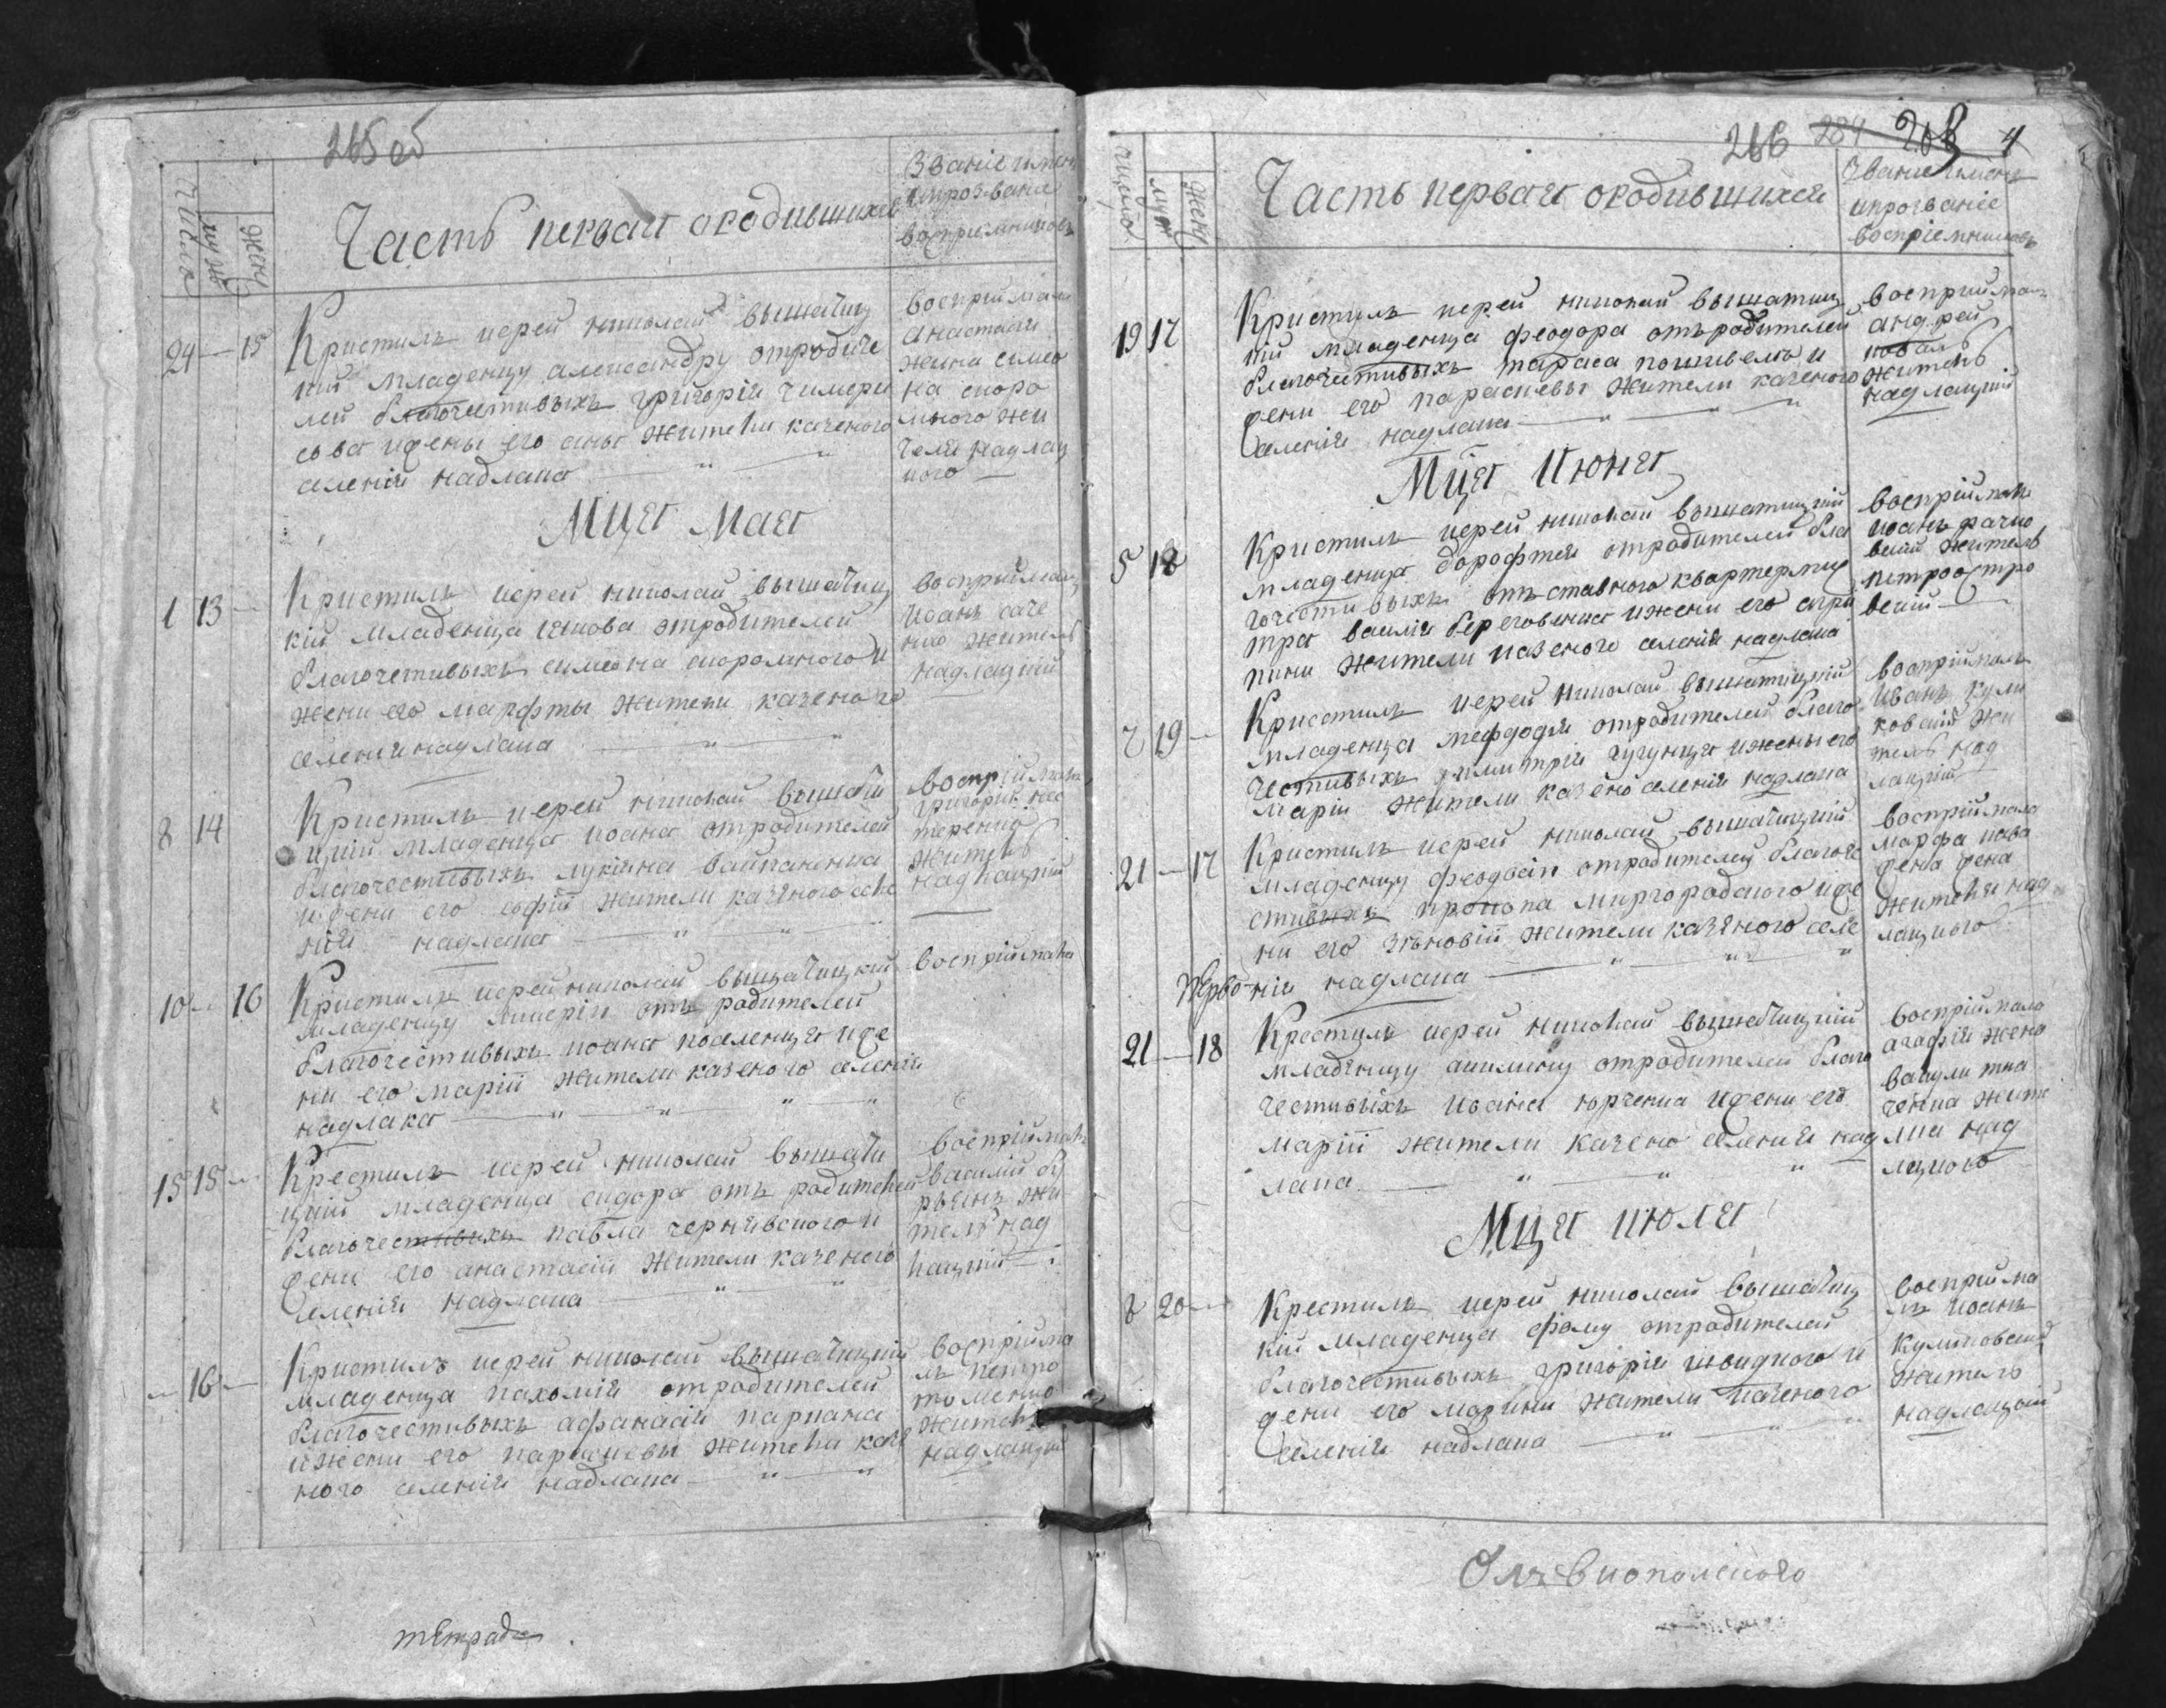 265 об
Число
муж
жен
Часть первая ородившихся
Званіе имен
ипрозвание
восприемниковъ
24 — 15
Кристилъ иерей николай вышатиц
кий младенцу александру отродите
лей благочестивыхъ григорія чимери
совa ижены его аны жители казеного
селенія надлака
воспримала
анастасия
жина симео
на скоро
много жи
теля надлац
кого —
Мця Мая
1 13 —
Кристилъ иерей николай вышатиц
кій младенца иякова отродителей
благочетивыхъ симеона скоромного и
жени его марфты жители казеного
селения надлака
восприймалъ
иоанъ саче
нко житель
надлацкій
8 14
Кристилъ иерей николай вышати
цкій младенца иоана отродителей
благочестивыхъ лукіяна
ижени его софіи жители казяного селе
нія надлака
воспріймалъ
григорій нес
теренко
житель
надлацкій
10 — 16
Кристилъ иерей николай вышатицкий
младенцу гликерію отъ родителей
благочестивыхъ иоана поселенця ижe
ни его маріи жители казеного селенія
надлака
воспріймала
15 15 —
Крестилъ иерей николай вышати
цкій младенца сидора отъ родителей
благочестивыхъ павла чернявского и
жени его анастасіи жители казеного
Селенія надлака
воспріймалъ
василій бу
рьянъ жи
тель над
лацкій
— 16 —
Кристилъ иерей николай вышатицкій
младенца пахомія отродителей
благочестивыхъ афанасія паркана
ижени его параскевы жители казе
ного селенія надлака
воспрійма
лъ петро
томенко
житель
надлацкий
тЕтрадь
266 284 268 4
Число
муж
жен
Часть первая ородившихся
Звание имен
ипрозваніе
воспріемниковъ
19 17
Кристилъ иерей николай вышатиц
кій младенца феодора отъродителей
благочестивыхъ тараса пошивела и
жени его параскевы жители казеного
Селенія надлака
восприймалъ
андрей
коваль
житель
надлацкий
Мця Июня
5 18
Кристилъ иерей николай вышатицкий
младенца дорофтея отродителей бла
гочестивыхъ отъставного квартермис
тра василія береговенка ижени его агри
пини жители казеного селенія надлака
воспріймалъ
иоанъ рачко
вский житель
петроостро
вский
7 19 —
Кристилъ иерей николай вышатицкій
младенца мефдодія отродителей благо
честивыхъ димитрія чугунця ижены его
маріи жители казено селенія надлака
воспріймалъ
Иванъ кули
ковский жи
тель над
лацкій
21 — 17
Кристилъ иерей николай вышатицкій
младенцу феодосію отродителей благоче
стивыхъ прокопа миргородского иже
ни его Зѣновіи жители казяного селе
нія надлака
воспріймала
марфа кова
лена жена
жителя над
лацкого
21 — 18
Крестилъ иерей николай вышатицкій
младенцу акилину отродителей благо
честивыхъ ивана юрченка ижени его
маріи жители казено селения над
лака
воспріймала
агафія жена
вакули тка
ченка жите
ля над
лацкого
Мця июля
8 20 —
Крестилъ иерей николай вышатиц
кій младенца фому отродителей
благочестивыхъ григорія швидкого и
жени его марини жители казеного
Селенія надлака
восприйма
лъ иоанъ
куликовский
житель
надлацкий
Ольвиопольского